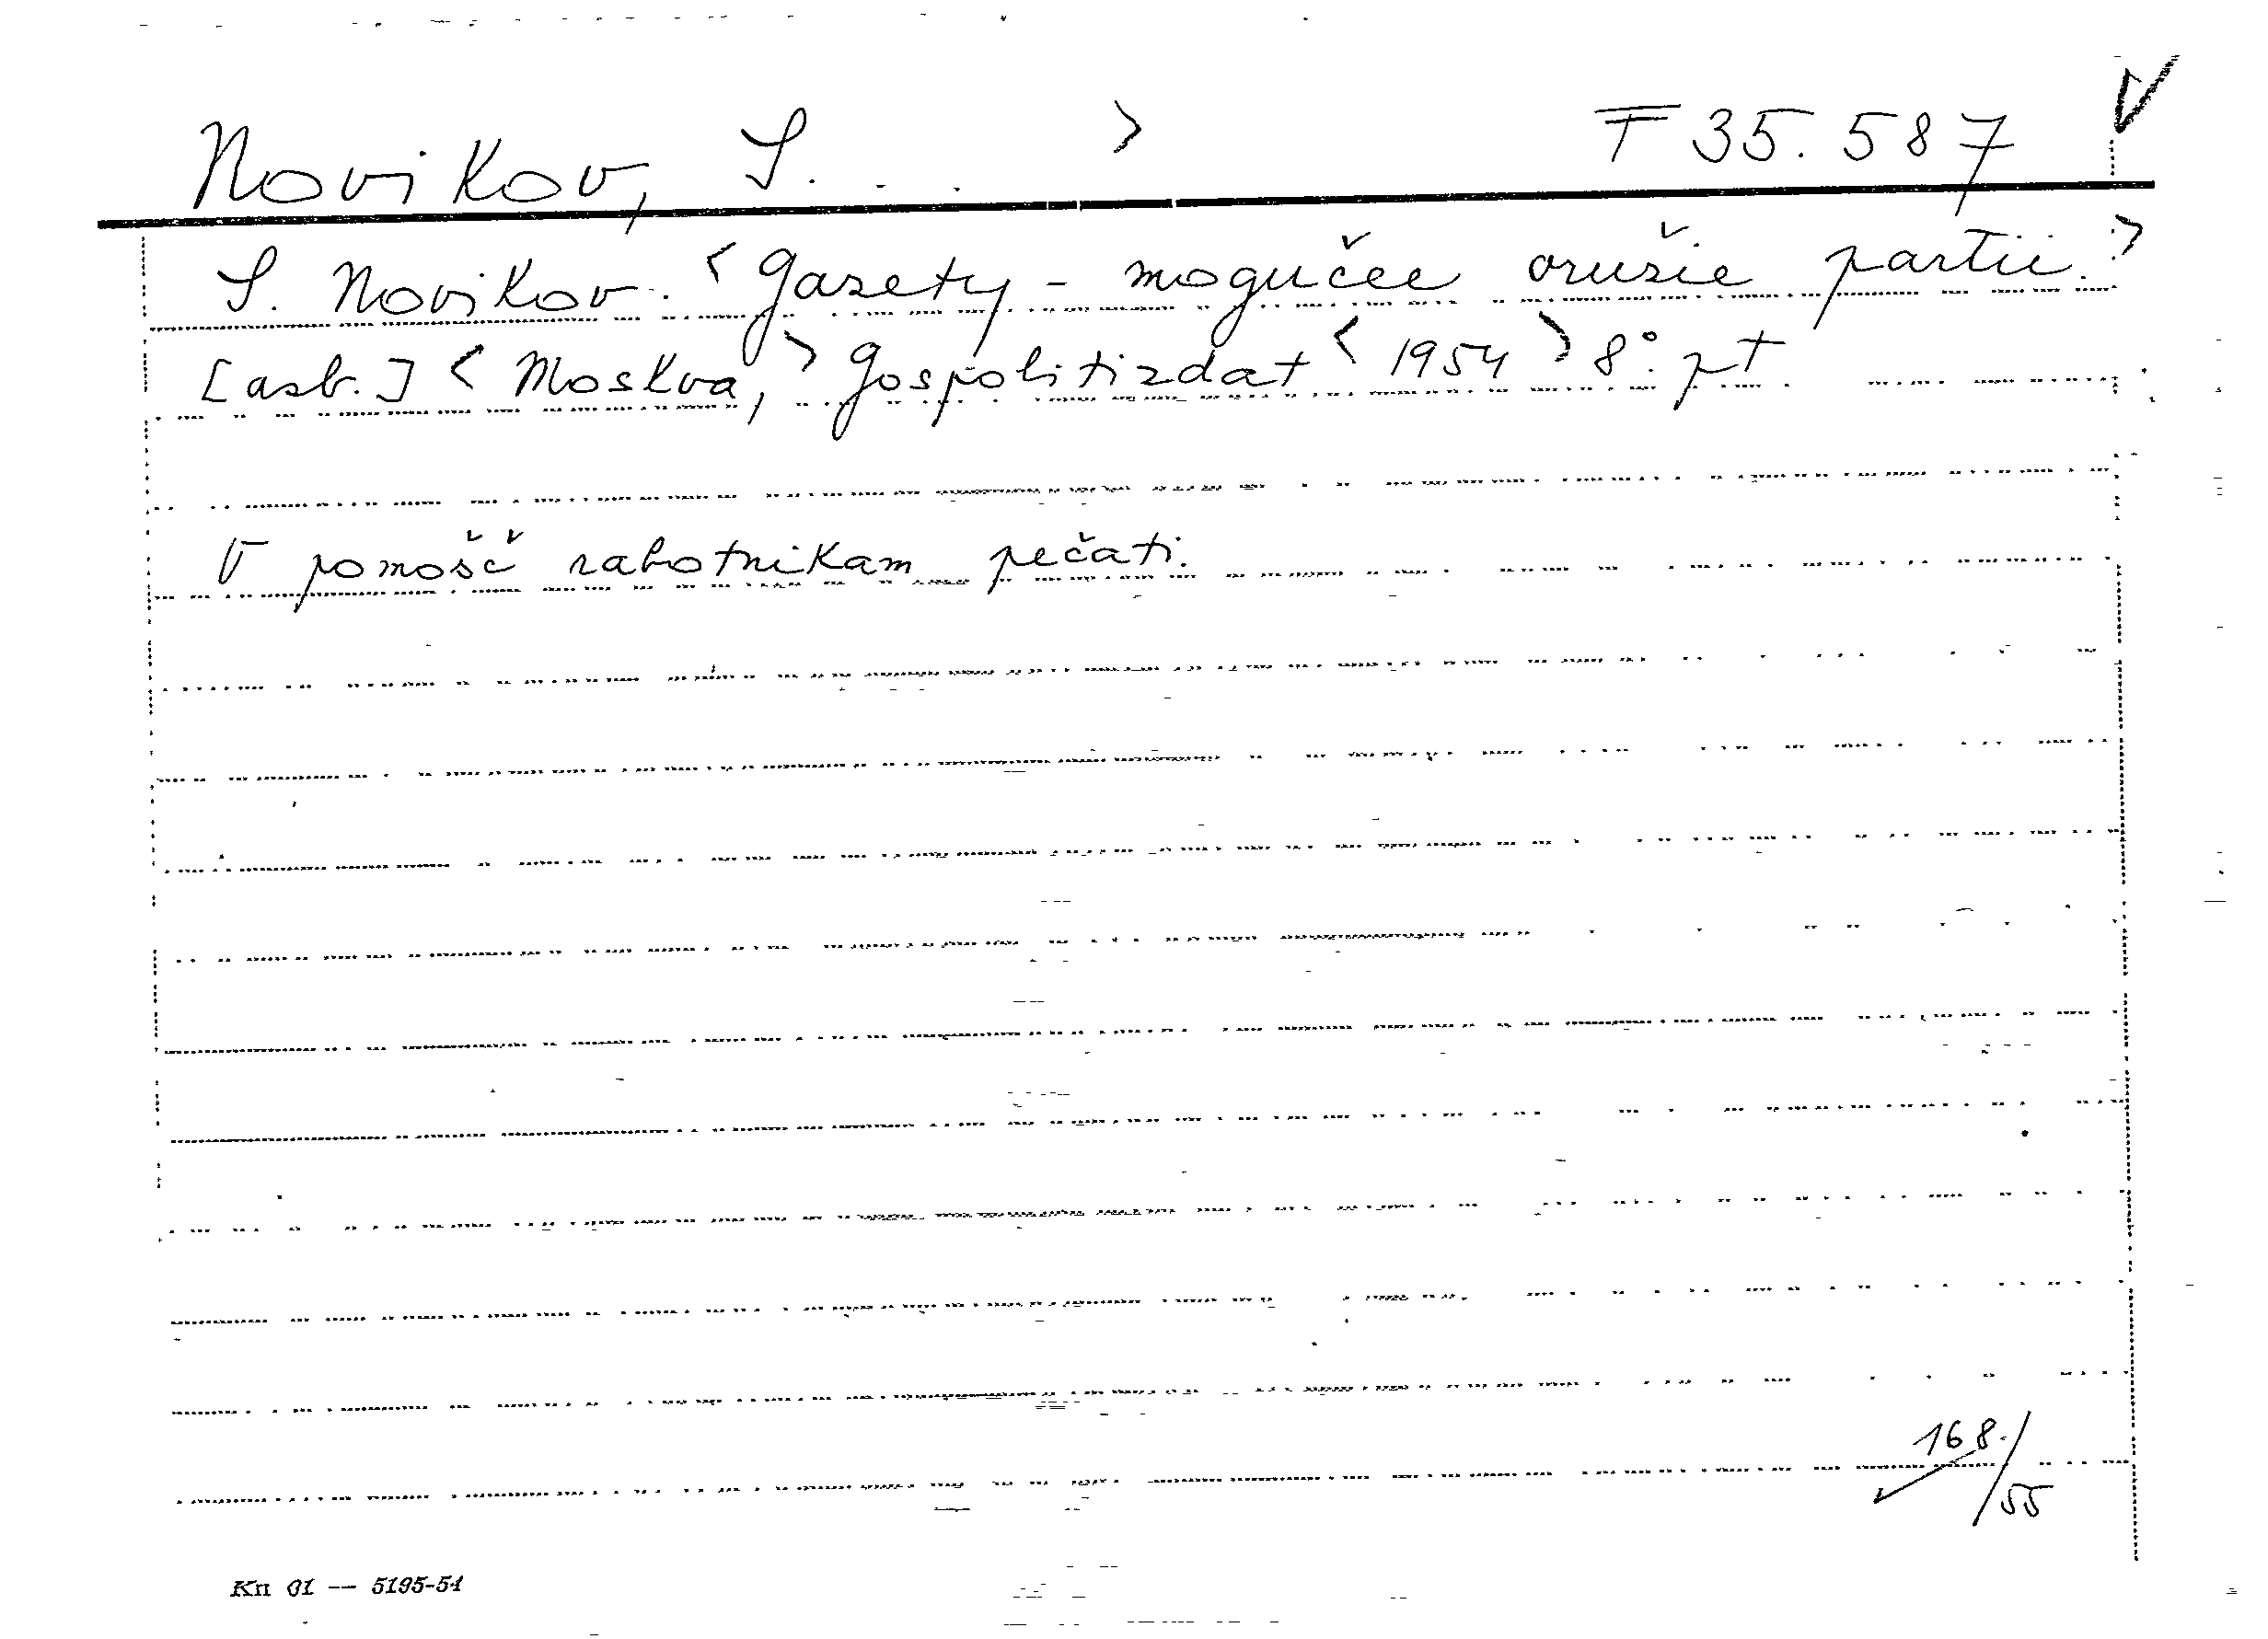 Novikov, S. . . > F 35.587
S. Novikov. <Gazety - mogučee oružie partii.>
[azb.] <Moskva,> Gospolitizdat <1954> 8° pt
V pomošč rabotnikam pečati.
168./55
Kn 01 — 5195-54